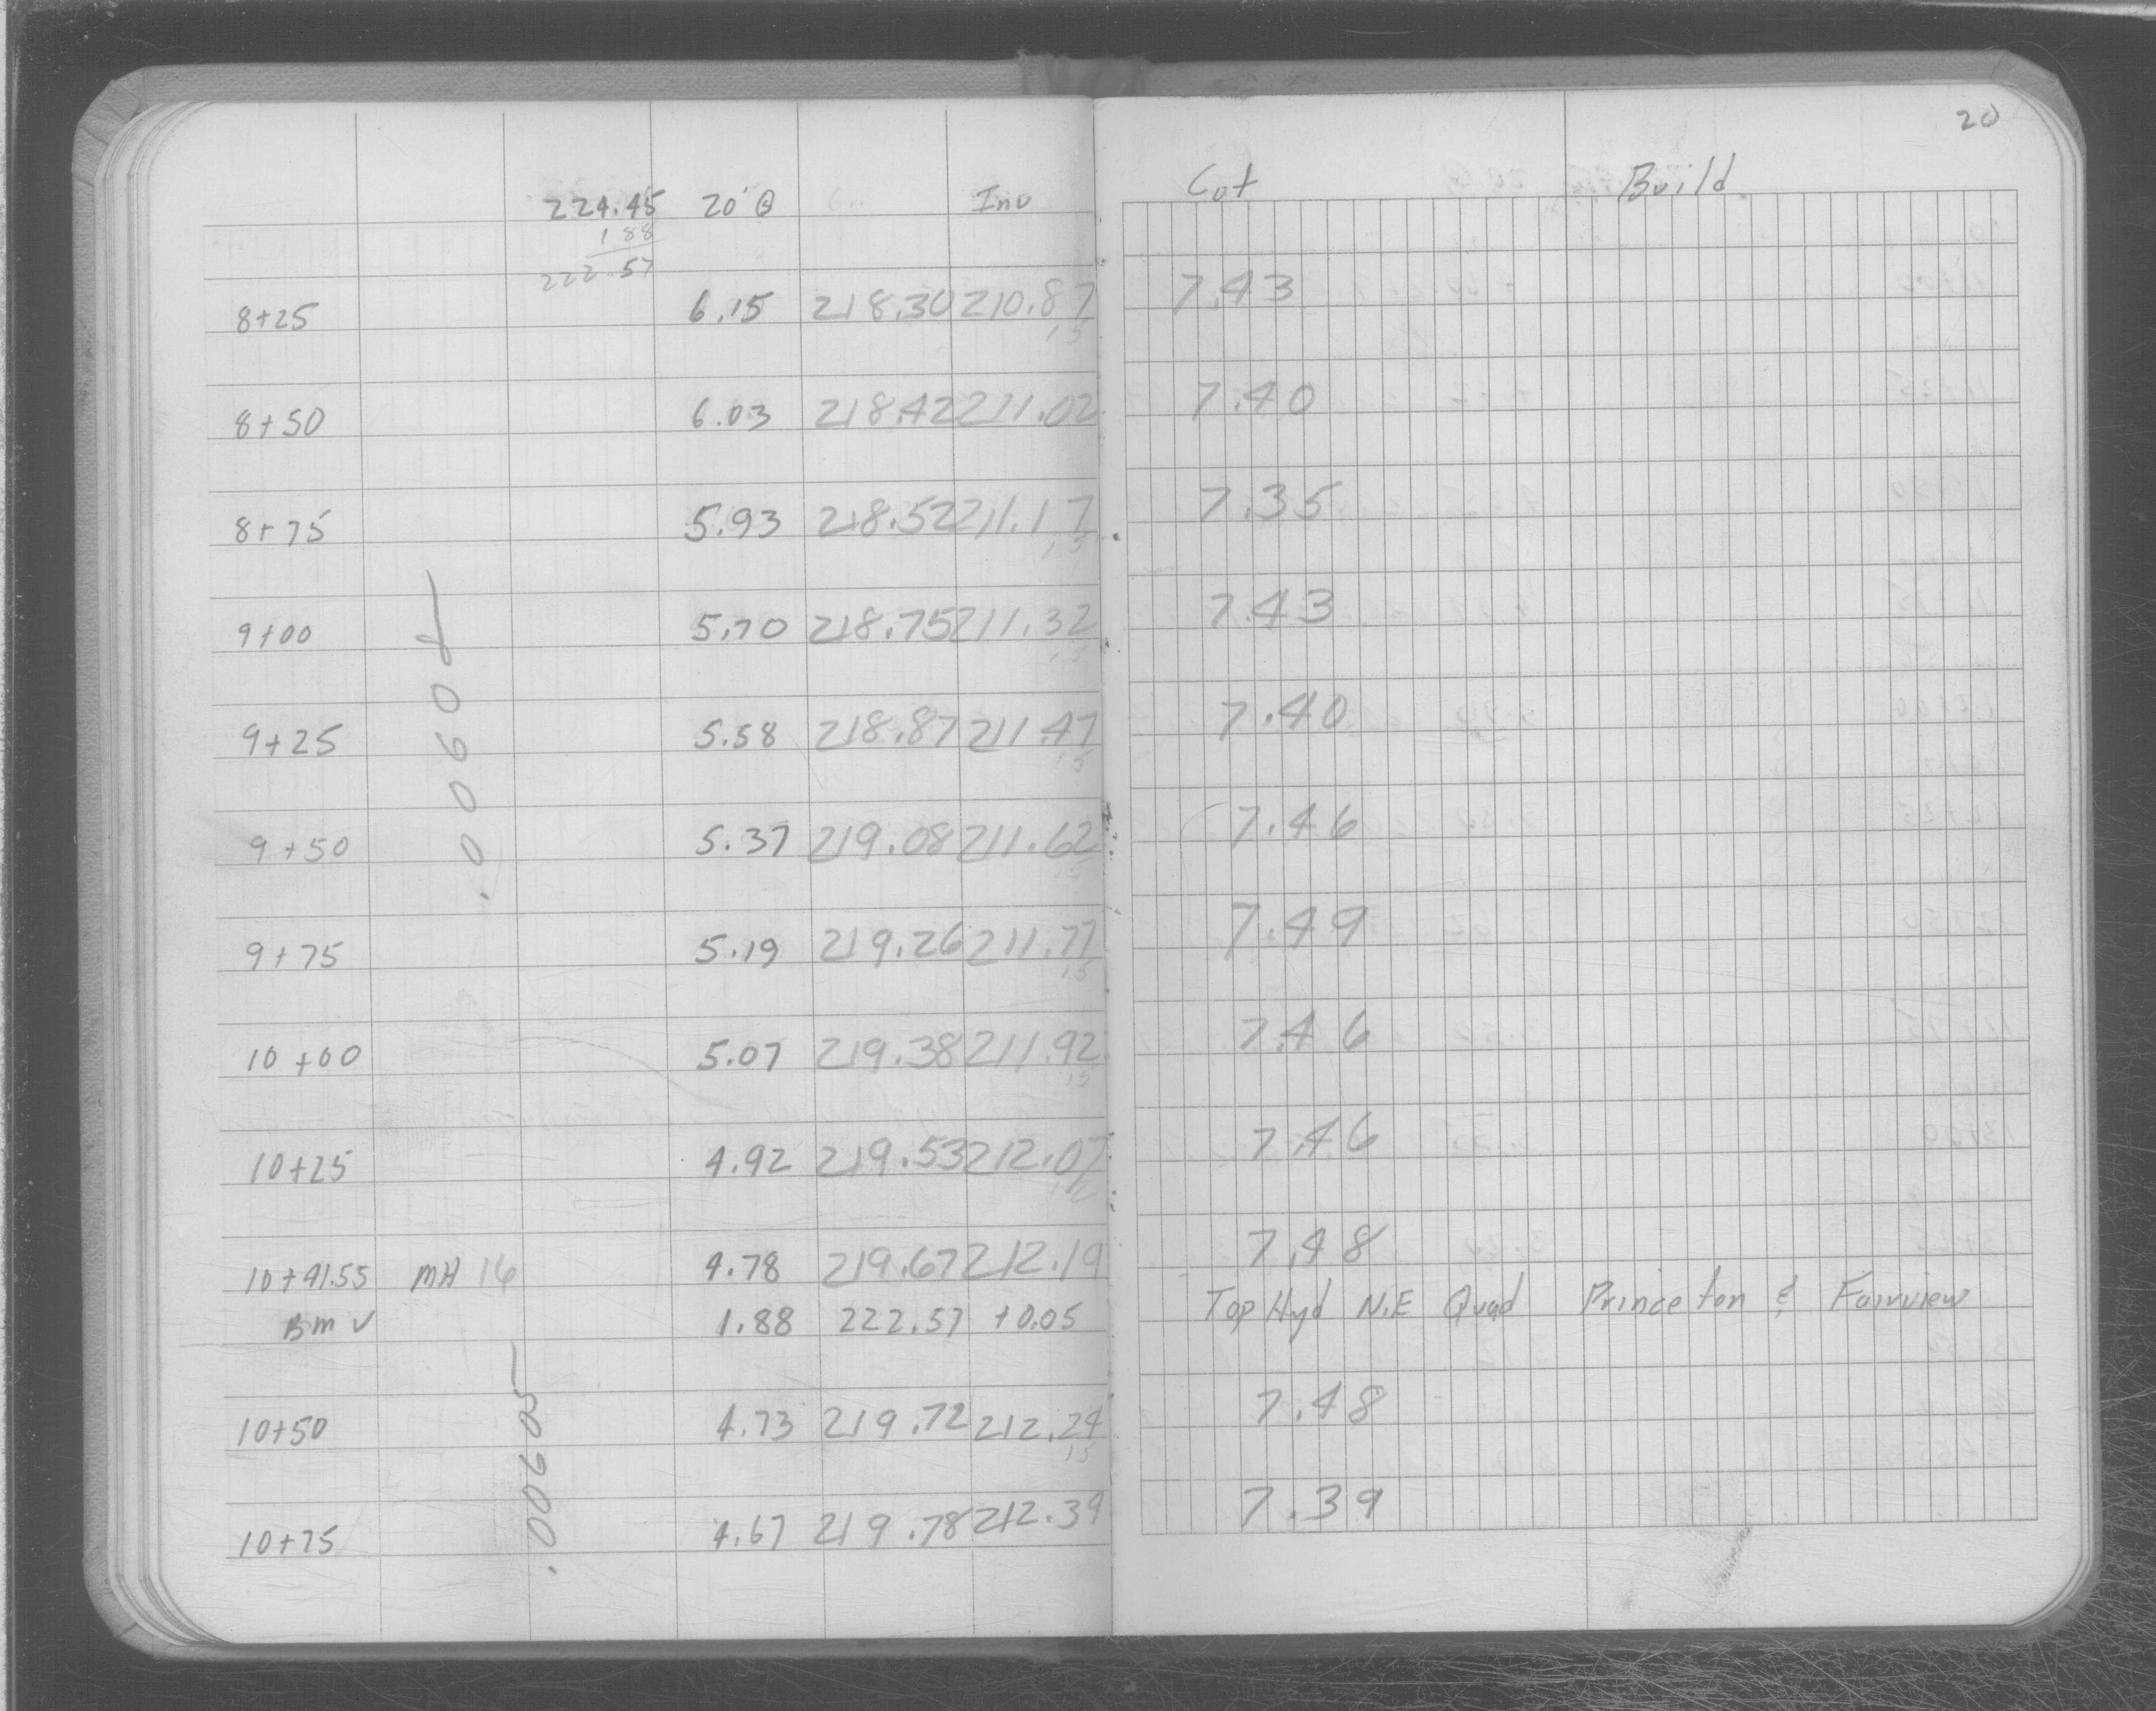 20
224.45 20'@ Gr. Inv Cut Build
188
222.57
8+25 6.15 218.30 210.87 7.43
15
8+50 6.03 218.42 211.02 7.40
8+75 5.93 218.52 211.17 7.35
15
9+00 5.70 218.75 211.32 7.43
15
9+25 5.58 218.87 211.47 7.40
15
9+50 5.37 219.08 211.62 7.46
15
9+75 5.19 219.26 211.77 7.49
15
10+00 5.07 219.38 211.92 7.46
15
10+25 4.92 219.53 212.07 7.46
12
10+41.55 MH 16 4.78 219.67 212.19 7.48
BM √ 1.88 222.57 +0.05 Top Hyd N.E Quad Princeton & Fairview
10+50 4.73 219.72 212.24 7.48
15
10+75 4.67 219.78 212.39 7.39
.0060
.00605